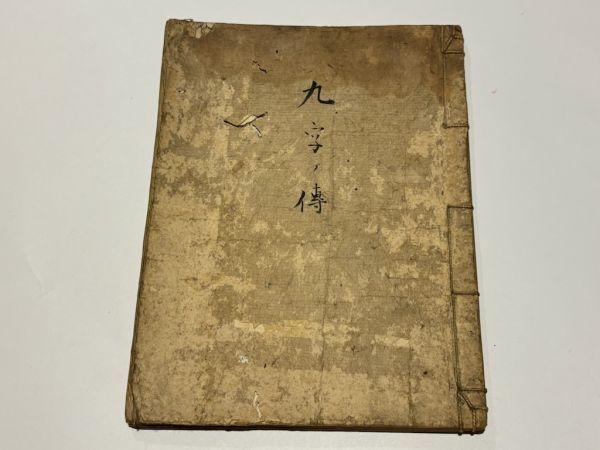 九字ノ傳